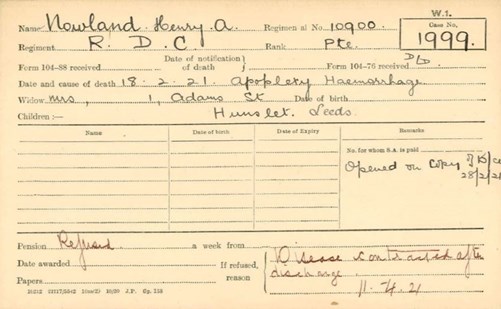 W.1.
Name Nowland. Henry A. Regimental No. 10900. Case No.
Regiment R. D. C. Rank Pte. 1999.
Form 104-88 received Date of notification of death Form 104-76 received D/D
Date and cause of death 18. 2. 21. Apoplexy Haemorrhage
Widow Mrs, 1, Adams St Date of birth
Children :— Hunslet. Leeds.
Name Date of birth Date of Expiry Remarks
No. for whom S.A. is paid
Opened on Copy
28/2/21
Pension Refused. a week from
Date awarded If refused, reason Disease contracted after discharge.
Papers 11. 4. 21